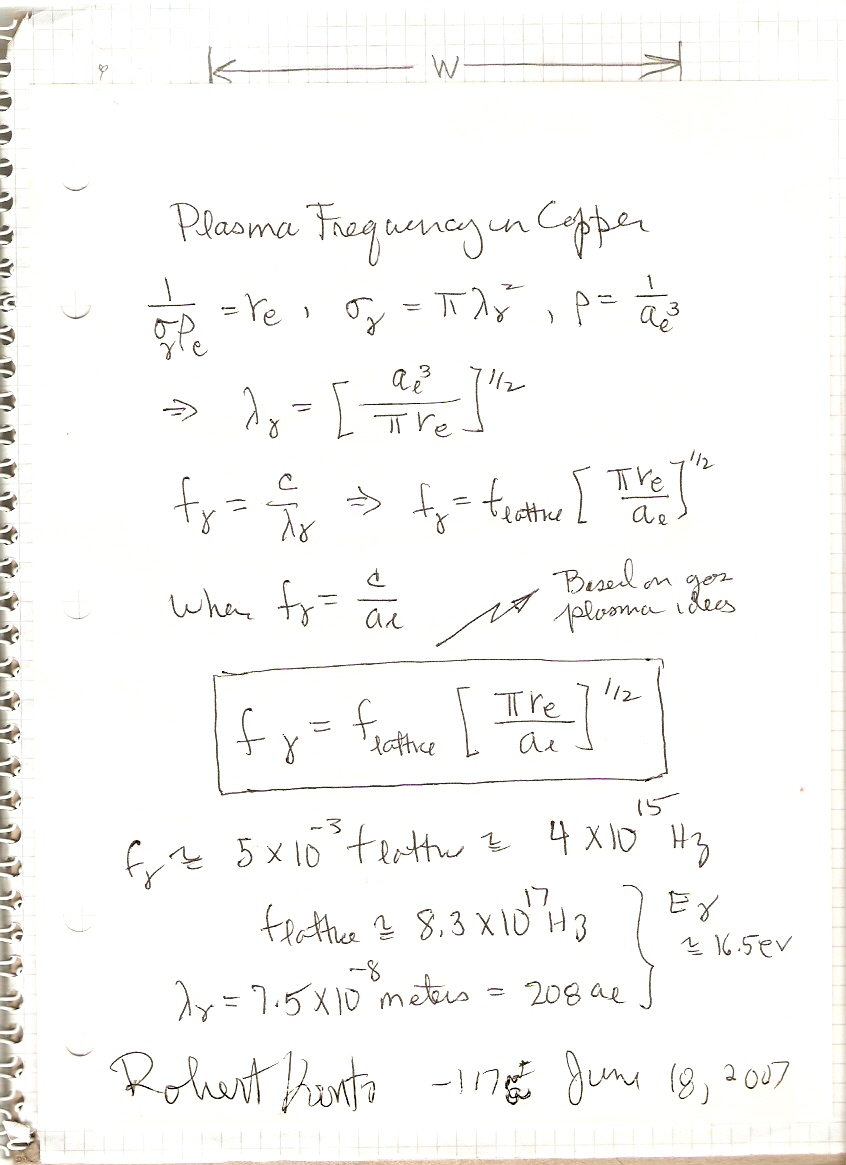 W
Plasma Frequency in Copper
1/(σᵧρₑ) = rₑ , σᵧ = πλᵧ² , ρ = 1/aₑ³
⇒ λᵧ = [aₑ³/(πrₑ)]^1/2
fᵧ = c/λᵧ ⇒ fᵧ = f_lattice [πrₑ/aₑ]^1/2
When fᵧ = c/aₑ
Based on gas
plasma ideas
fᵧ = f_lattice [πrₑ/aₑ]^1/2
fᵧ ≅ 5 × 10⁻³ f_lattice ≅ 4 × 10¹⁵ Hz
f_lattice ≅ 8.3 × 10¹⁷ Hz
Eᵧ
≅ 16.5 ev
λᵧ = 7.5 × 10⁻⁸ meters = 208 aₑ
Robert -117 June 18, 2007